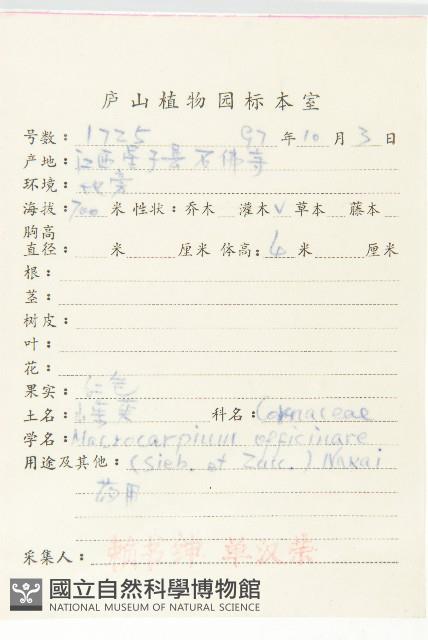 庐山植物园标本室
号数： 1725 97 年 10 月 3 日
产地： 江西星子县石佛寺
环境： 旁
海拔： 700 米 性状： 乔木 灌木 √ 草本 藤本
胸高
直径： 米 厘米 体高： 4 米 厘米
根：
茎：
树皮：
叶：
花：
果实： 红色
土名： 山茱萸 科名： Cornaceae
学名： Macrocarpium officinare
用途及其他： (Sieb. et Zucc.) Nakai
药用
采集人： 赖书绅 单汉荣
國立自然科學博物館
NATIONAL MUSEUM OF NATURAL SCIENCE